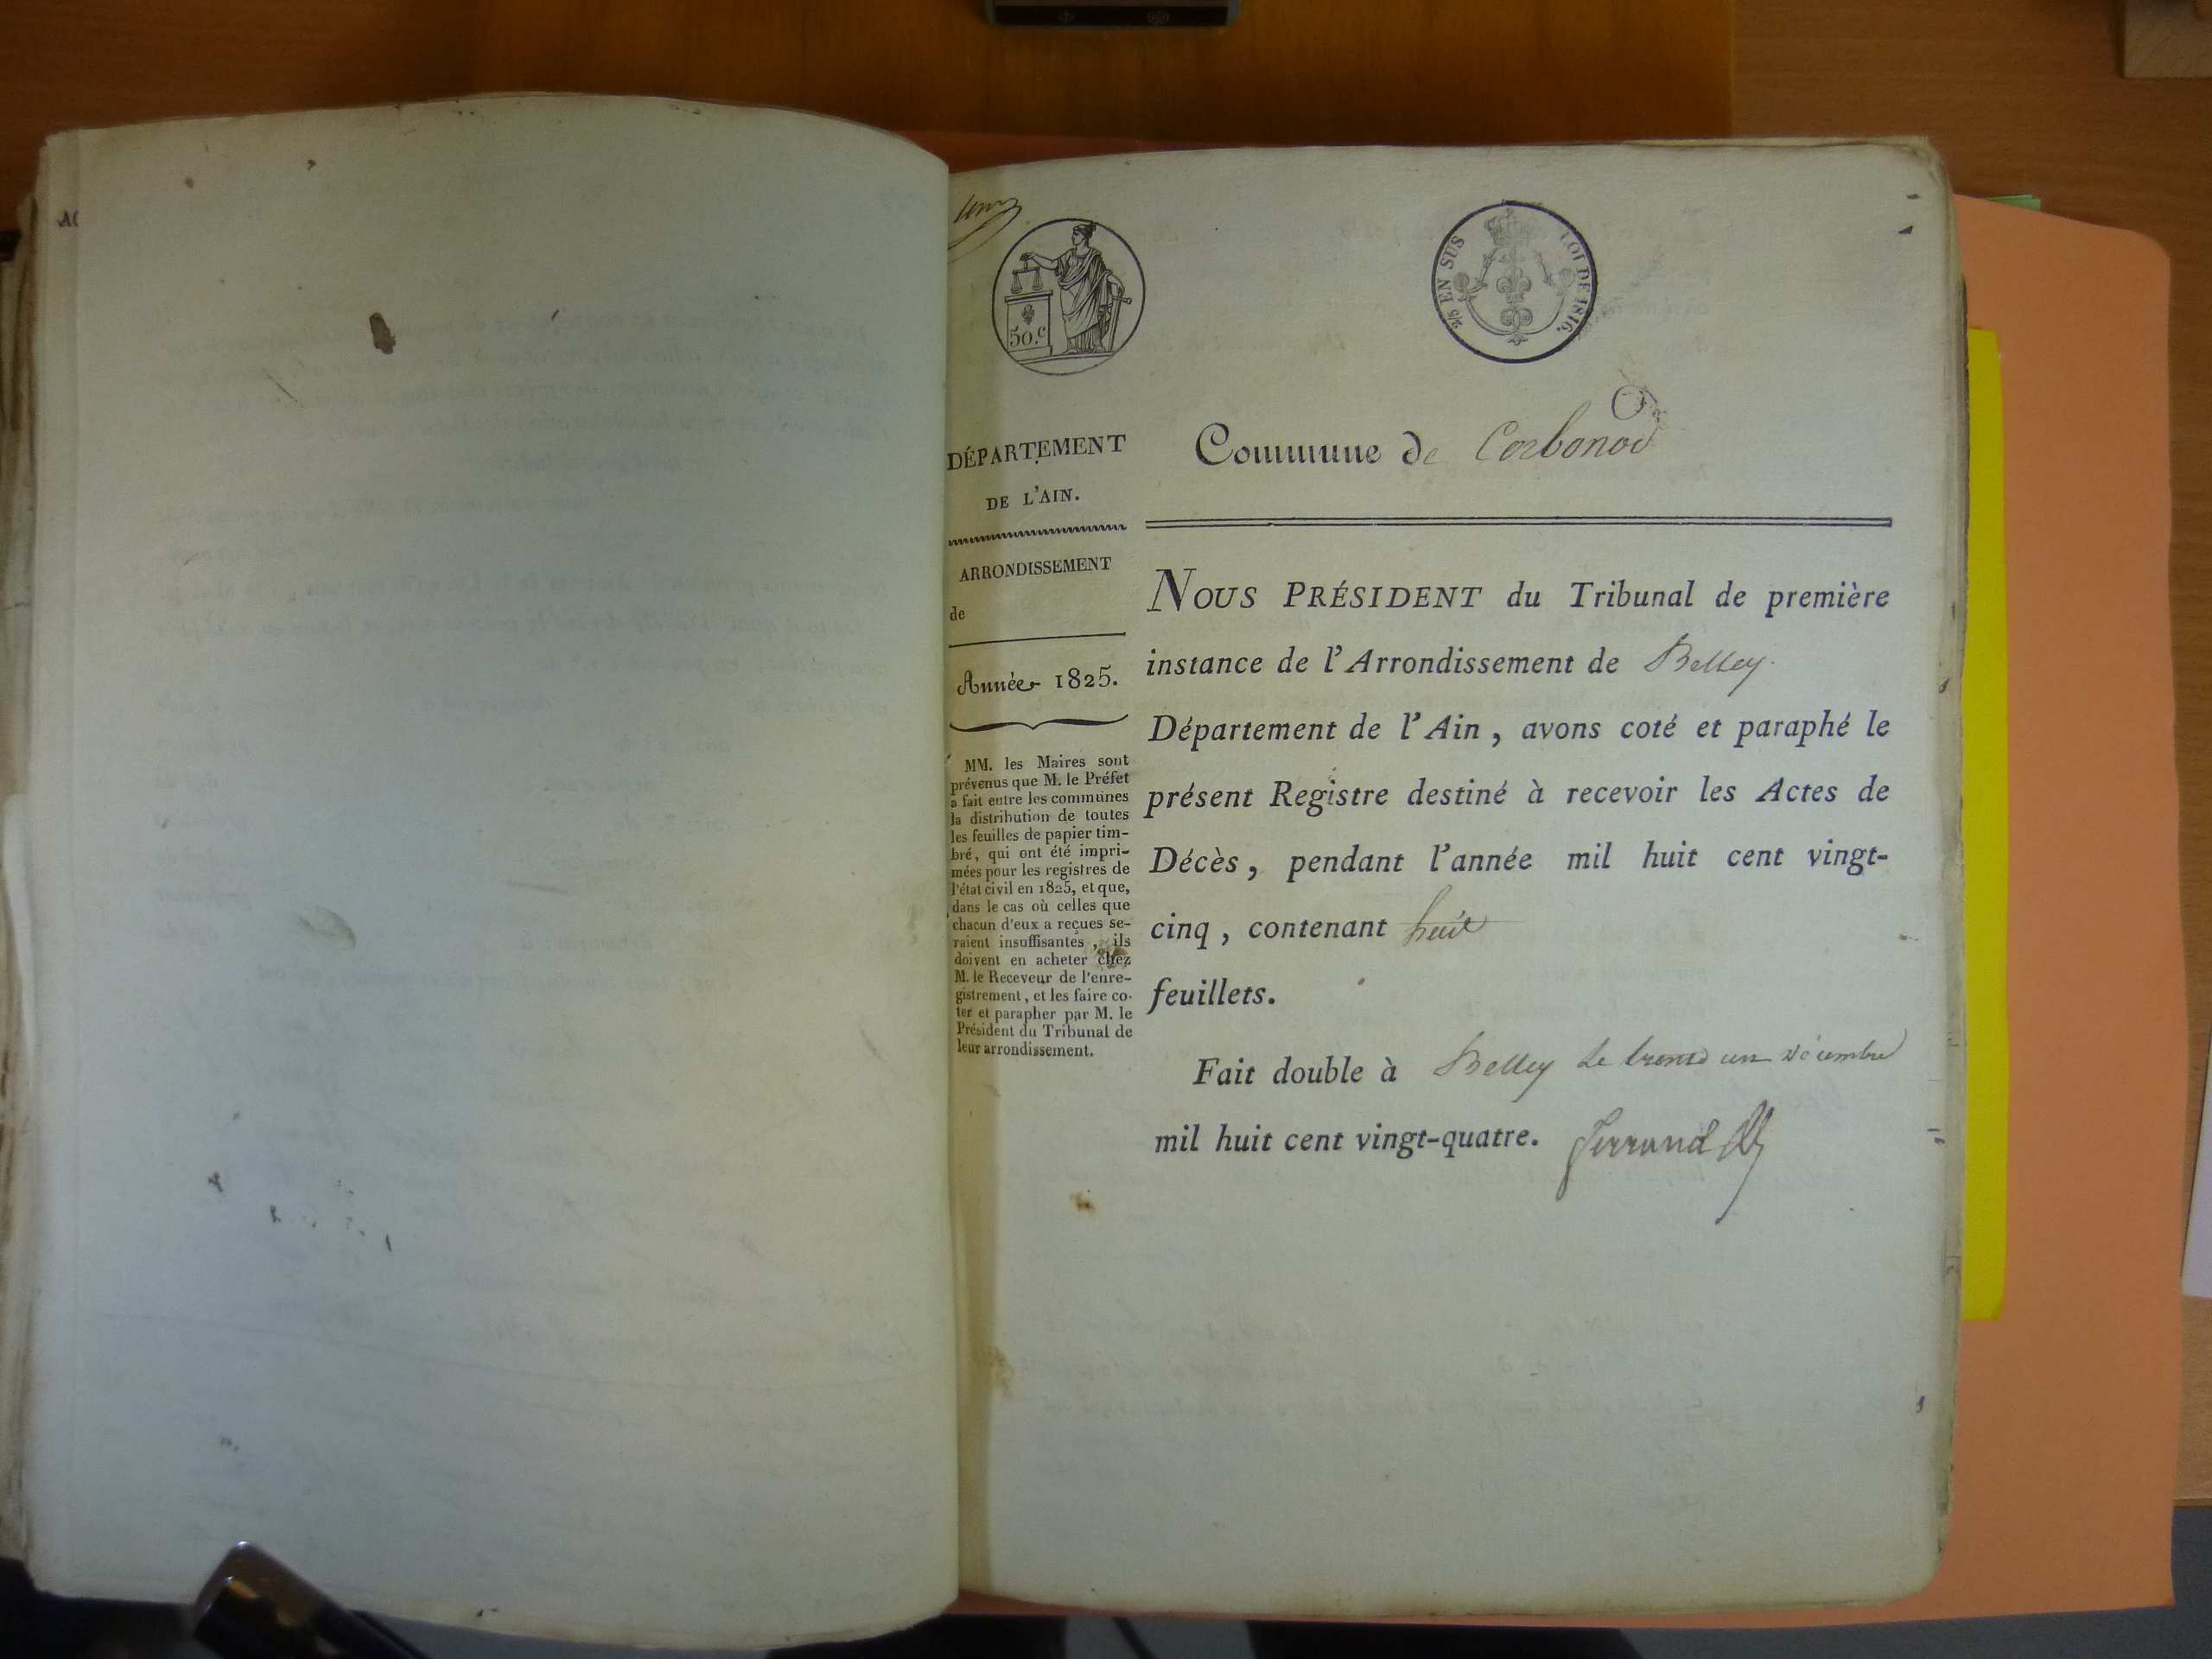 50.c
2/5 EN SUS
LOI DE 1816.
DÉPARTEMENT
DE L'AIN.
ARRONDISSEMENT
de
Année 1825.
MM. les Maires sont
prévenus que M. le Préfet
a fait entre les communes
la distribution de toutes
les feuilles de papier tim-
bré, qui ont été impri-
mées pour les registres de
l'état civil en 1825, et que,
dans le cas où celles que
chacun d'eux a reçues se-
raient insuffisantes, ils
doivent en acheter chez
M. le Receveur de l'enre-
gistrement, et les faire co-
ter et parapher par M. le
Président du Tribunal de
leur arrondissement.
Commune de Corbonod
NOUS PRÉSIDENT du Tribunal de première
instance de l'Arrondissement de Belley.
Département de l'Ain, avons coté et paraphé le
présent Registre destiné à recevoir les Actes de
Décès, pendant l'année mil huit cent vingt-
cinq, contenant huit
feuillets.
Fait double à Belley le trente un Décembre
mil huit cent vingt-quatre. Ferrand